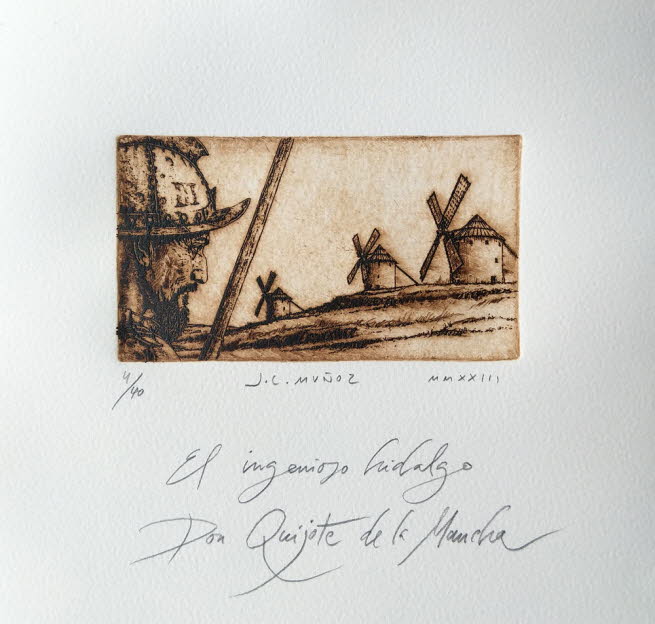 4/40 J.C. MUÑOZ MMXXIII
El ingenioso hidalgo
Don Quijote de la Mancha